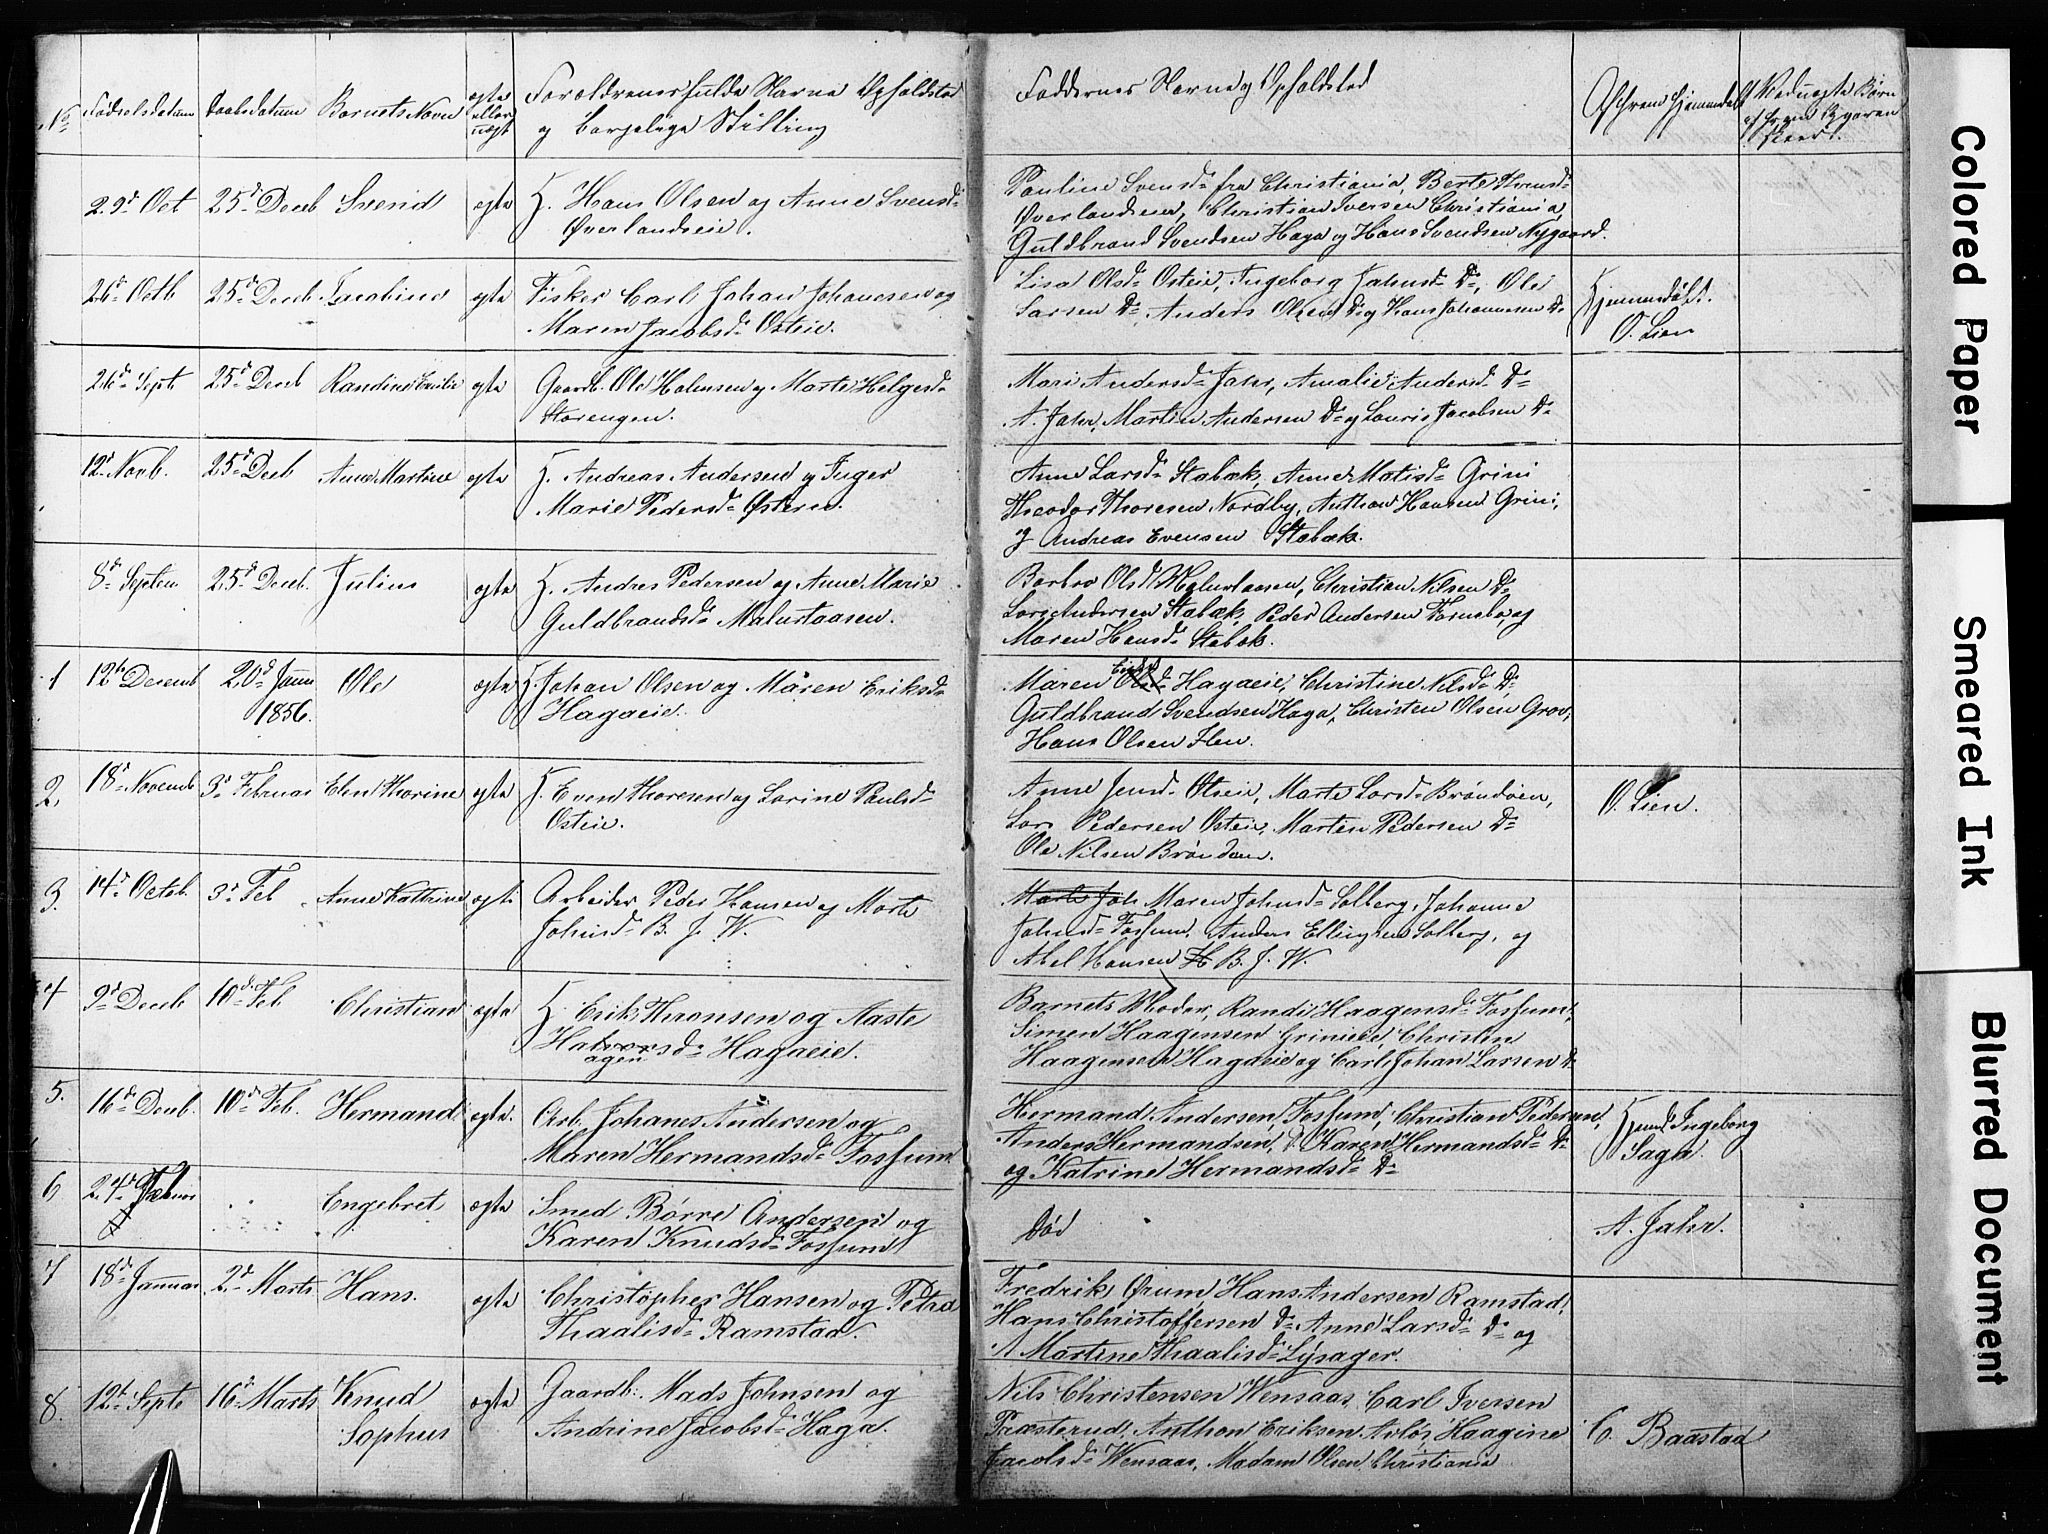 No
Fødselsdatum
Daabsdatum
Barnets Navn
ægte
eller
uægte
Forældrenes fulde Navne Opholdsted
og borgelige Stilling
Faddernes Navne og Opholdsted
29d Oct
25d Decb
Svend
ægte
H. Hans Olsen og Anne Svensd
Øverlandseie.
Pauline Svensd fra Christiania, Berte
Øverlandseie, Christian Iversen Christiania,
Guldbrand Svendsen Haga og Hans Svendsen Nygaard.
26d Octb
25d Decb
Jacobine
ægte
Fisker Carl Johan Johanesen og
Maren Jacobsd Osteie.
Lisa Olsd Osteie, Ingeborg Jahnsd Do, Ole
Larsen Do, Anders Olsen Do og Hans Johannesen Do
Hjemmedøbt.
O. Lien
26d Septb
25d Decb
Randine Emilie
ægte
Gaardb. Ole Halvorsen og Marte Helgesd
Storengen.
Mari Andersd Jahr, Amalie Andersd Do
A. Jahr, Martin Andersen Do og Louris Jacobsen Do
12d Novb.
25d Decb
Anne Martine
ægte
H. Andreas Andersen og Inger
Marie Pedersd Østern.
Anne Larsd Stabæk, Anne Matisd Grini
Theodor Thoresen Nordby, Anthon Hansen Grini,
og Andreas Evensen Stabæk.
8d Septem
25d Decb.
Julius
ægte
H. Andres Pedersen og Anne Marie
Guldbrandsd
Barbro Olsd Christian Nilsen Do
Lars Andersen Stabæk, Peder Andersen Fornebo og
Maren Hansd Stabæk.
1
12te Decemb
20d Janu
1856.
Ole
ægte
H. Johan Olsen og Maren Eriksd
Hagaeie.
Maren Olsd Hagaeie, Christine Nilsd Do
Guldbrand Svendsen Haga, Christen Olsen Grov,
Hans Olsen Ilen.
2,
18d Novemb
3d Februar
Elen Thorine
ægte
H. Even Thoresen og Karine Paulsd
Osteie.
Anne Jensd Osteie, Marte Larsd Brøndøen,
Lars Pedersen Osteie, Martin Pedersen Do
Ole Nilsen Brøndøen.
O. Lien.
3.
14d Octob.
3d Feb
Anne Kathrine
ægte
Arbeider Peder Hansen og Marte
Johnsd B. J. W.
Marte Joh Maren Johnsd Solberg, Johanne
Johnsd Fossum, Anders Ellingsen Solberg, og
Abel Hansen H B. J. W.
4
9d Decb
10d Feb
Christian
ægte
H. Erik Thronsen og Aaste
Halvorsd Hagaeie.
agen
Barnets Moder, Randi Haagensd Fossum,
Simen Haagensen Grinieie, Christen
Haagensen Hagaeie og Carl Johan Larsen Do
5.
16d Decb.
10d Feb.
Hermand
ægte.
Arb. Johanes Andersen og
Maren Hermandsd Fossum
Hermand Andersen, Fossum, Christian Pedersen,
Anders Hermandsen, Do Karen Hermandsd Do
og Katrine Hermandsd Do
Hjemd Ingeborg
Saga.
6
24d Februar
Engebret
ægte
Smed Børre Andersen og
Karen Knudsd Fossum
Død
A. Jahr.
7
18d Januar
2d Marts
Hans.
ægte
Christopher Hansen og Petra
Thaalisd Ramstad.
Fredrik Ørum Hans Andersen Ramstad,
Hans Christoffersen Do Anne Larsd Do og
Martine Thaalisd Lysager.
8.
12te Septe
16d Marts
Knud
Sophus
ægte
Gaardb. Mads Johnsen og
Andrine Jacobsd Haga.
Nils Christensen Wensaas, Carl Iversen
Præsterud, Anthon Eriksen Avløs, Haagine
Jacobsd Wensaas, Madam Olsen Christiania
C. Baastad
Colored Paper
Smeared Ink
Blurred Document